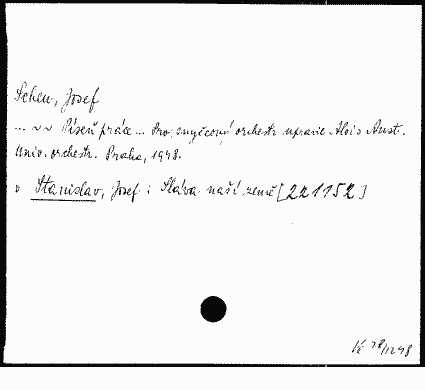 Scheu, Josef
... ~ ~ Píseň práce... Pro smyčcový orchestr upravil Alois Aust.
Univ. orchestr. Praha, 1948.
v Stanislav, Josef: Sláva naší země [221152]
Vč 28/1248